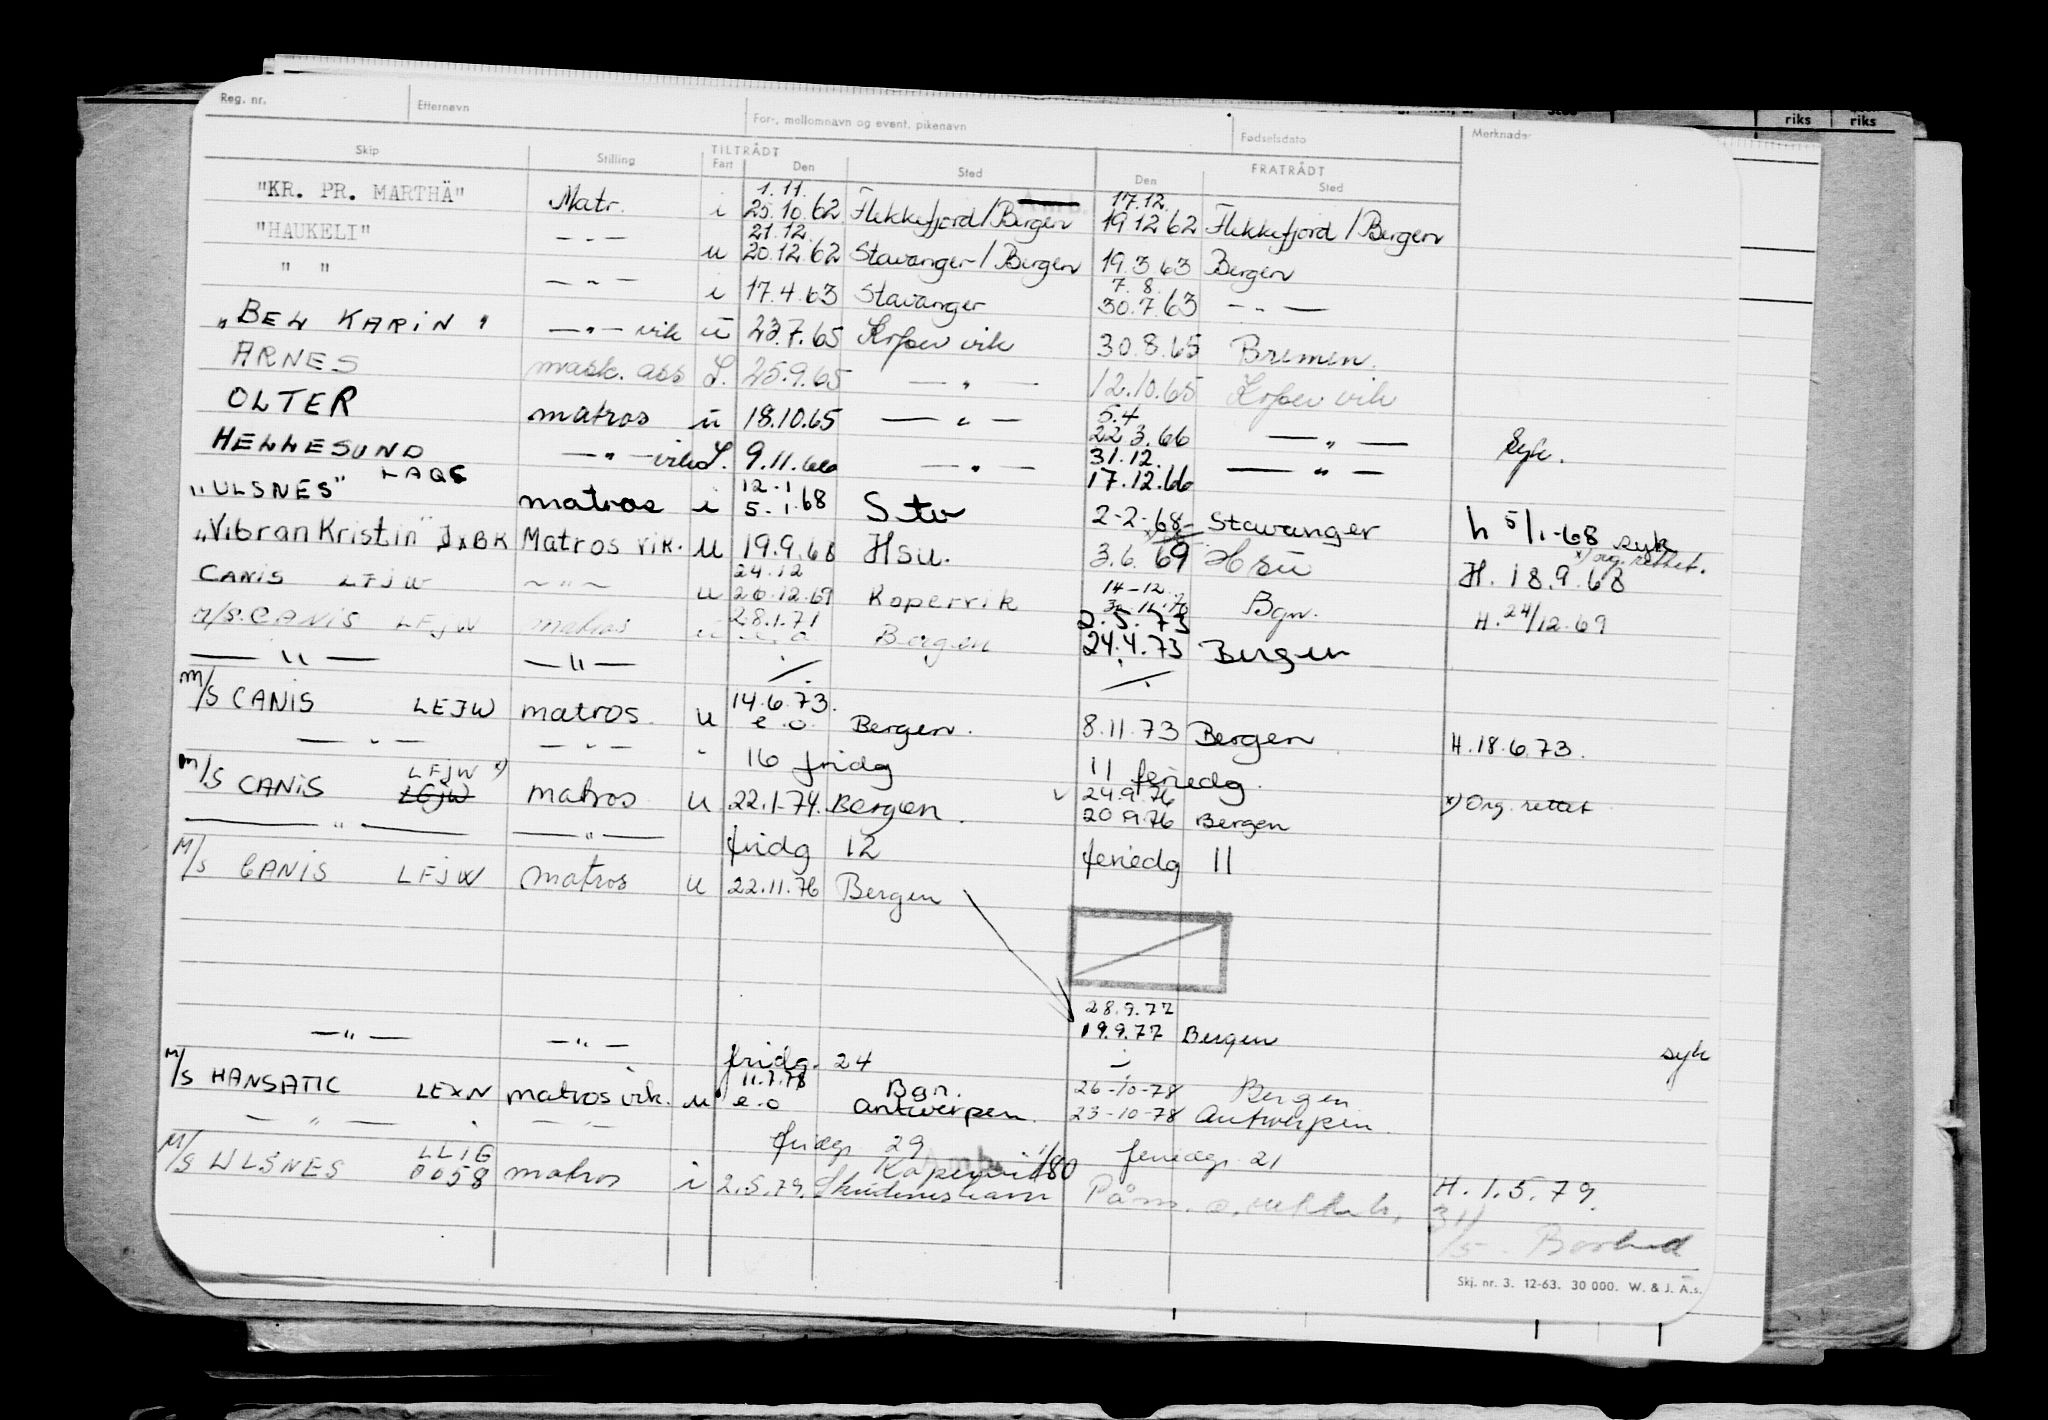 riks riks
Reg. nr. Etternavn For-, mellomnavn og event. pikenavn Fødselsdato Merknader
Skip Stilling TILTRÅDT Fart Den Sted FRATRÅDT Den Sted
1.11. 17.12.
"KR. PR. MARTHÄ" Matr. i 25.10.62 Flekkefjord/Bergen 19.12.62 Flekkefjord/Bergen
21.12.
"HAUKELI" — " — u 20.12.62 Stavanger/Bergen 19.3.63 Bergen
7.8.
" " — " — i 17.4.63 Stavanger 30.7.63 — " —
"BEL KARIN" — " — vik u 23.7.65 Kopervik 30.8.65 Bremen.
ARNES mask. ass L. 25.9.65 — " — 12.10.65 Kopervik
5.4
OLTER matros u 18.10.65 — " — 22.3.66 — " — Syk.
31.12.
HELLESUND — " — vik L. 9.11.66 — " — 17.12.66 — " —
LAQS 12.1
"ULSNES" matros i 5.1.68 Stv 2-2-68 Stavanger h 5/1-68 syk
x) org. rettet.
"Vibran Kristin" JXBK Matros vik. u 19.9.68 Hsu. 3.6.69 Hsu H. 18.9.68
24.12 14-12
CANIS LFJW ~ " ~ u 26.12.69 Kopervik Bgn. H. 24/12.69
28.1.71 2.5.73
M/S. CANIS LFJW matros Bergen 24.4.73 Bergen
— " — — " — ./. ./.
14.6.73.
M/S CANIS LEJW matros u e.o. Bergen. 8.11.73 Bergen H.18.6.73.
— " — — " — " 16 fridg 11 feriedg.
LFJW x) 24.9.76
M/S CANIS LEJW matros u 22.1.74. Bergen. 20.9.76 Bergen x) Org. rettet
— " — — " — fridg 12 feriedg 11
M/S CANIS LFJW matros u 22.11.76 Bergen
28.9.77
19.9.77 Bergen
— " — — " — fridg. 24 syk
11.7.78 Bgn. 26-10-78 Bergen
M/S HANSATIC LEXN matros vik. u e.o Antwerpen. 23-10-78 Antwerpen.
— " — — " — fridg. 29 feriedg. 21
LLIG Kopervik 1/80
M/S ULSNES 0058 matros i 2.5.79. Skudeneshavn H. 1.5.79.
Skj. nr. 3. 12-63. 30 000. W. & J. A.s.